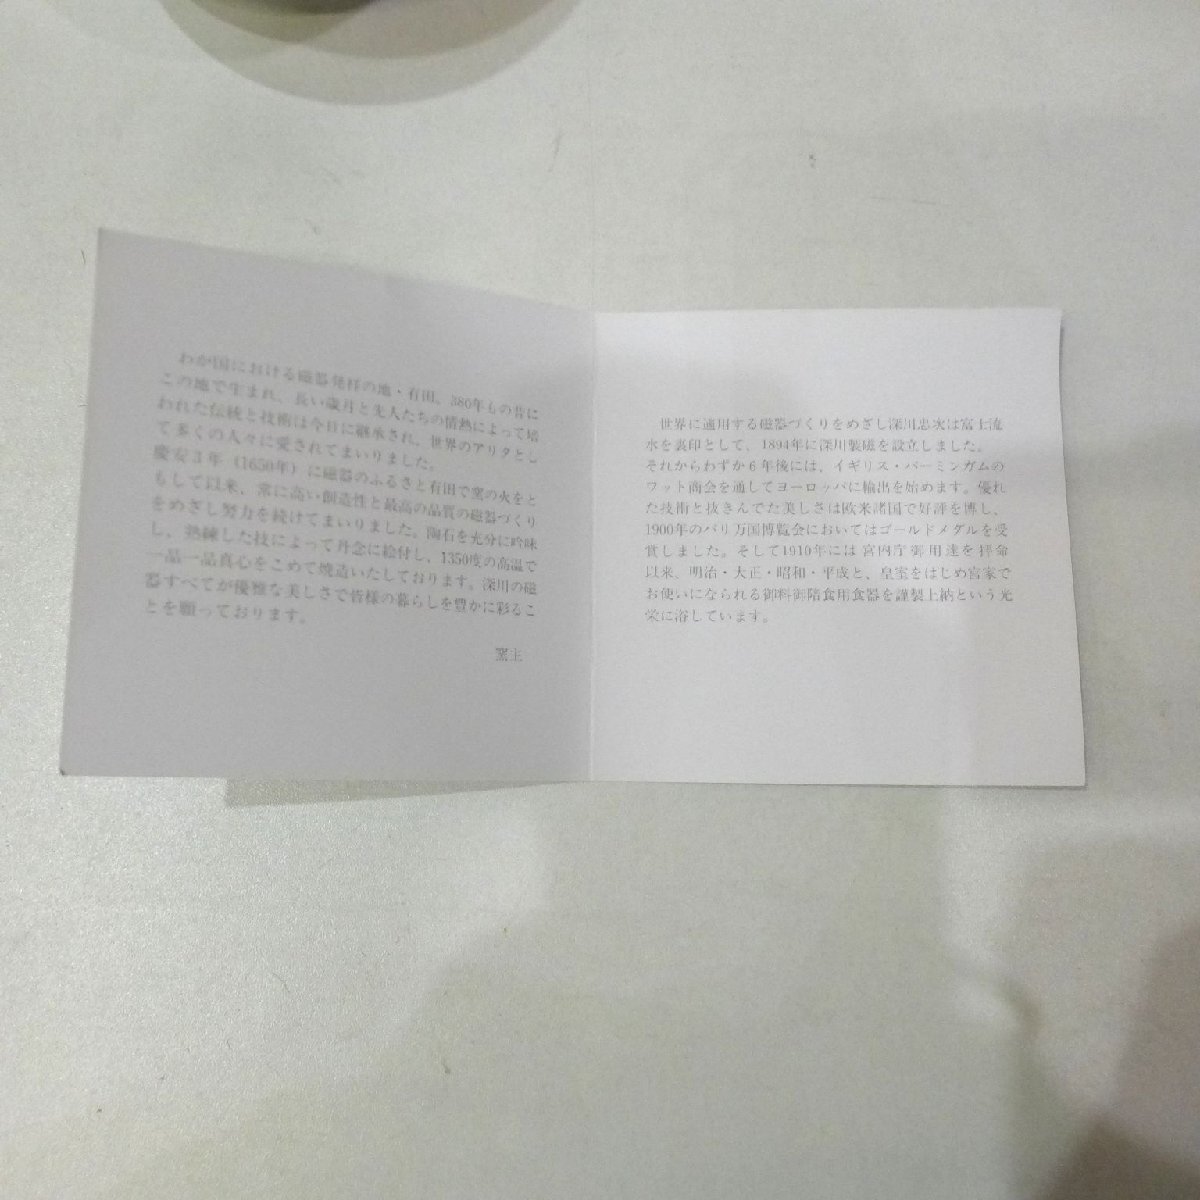 わが国における磁器発祥の地・有田。380年もの昔に
この地で生まれ、長い歳月と先人たちの情熱によって培
われた伝統と技術は今日に継承され、世界のアリタとし
て多くの人々に愛されてまいりました。
慶安3年（1650年）に磁器のふるさと有田で窯の火をと
もして以来、常に高い創造性と最高の品質の磁器づくり
をめざし努力を続けてまいりました。陶石を充分に吟味
し、熟練した技によって丹念に絵付し、1350度の高温で
一品一品真心をこめて焼造いたしております。深川の磁
器すべてが優雅な美しさで皆様の暮らしを豊かに彩るこ
とを願っております。
窯主
世界に通用する磁器づくりをめざし深川忠次は富士流
水を裏印として、1894年に深川製磁を設立しました。
それからわずか6年後には、イギリス・バーミンガムの
ワット商会を通してヨーロッパに輸出を始めます。優れ
た技術と抜きんでた美しさは欧米諸国で好評を博し、
1900年のパリ万国博覧会においてはゴールドメダルを受
賞しました。そして1910年には宮内庁御用達を拝命
以来、明治・大正・昭和・平成と、皇室をはじめ宮家で
お使いになられる御料御陪食用食器を謹製上納という光
栄に浴しています。